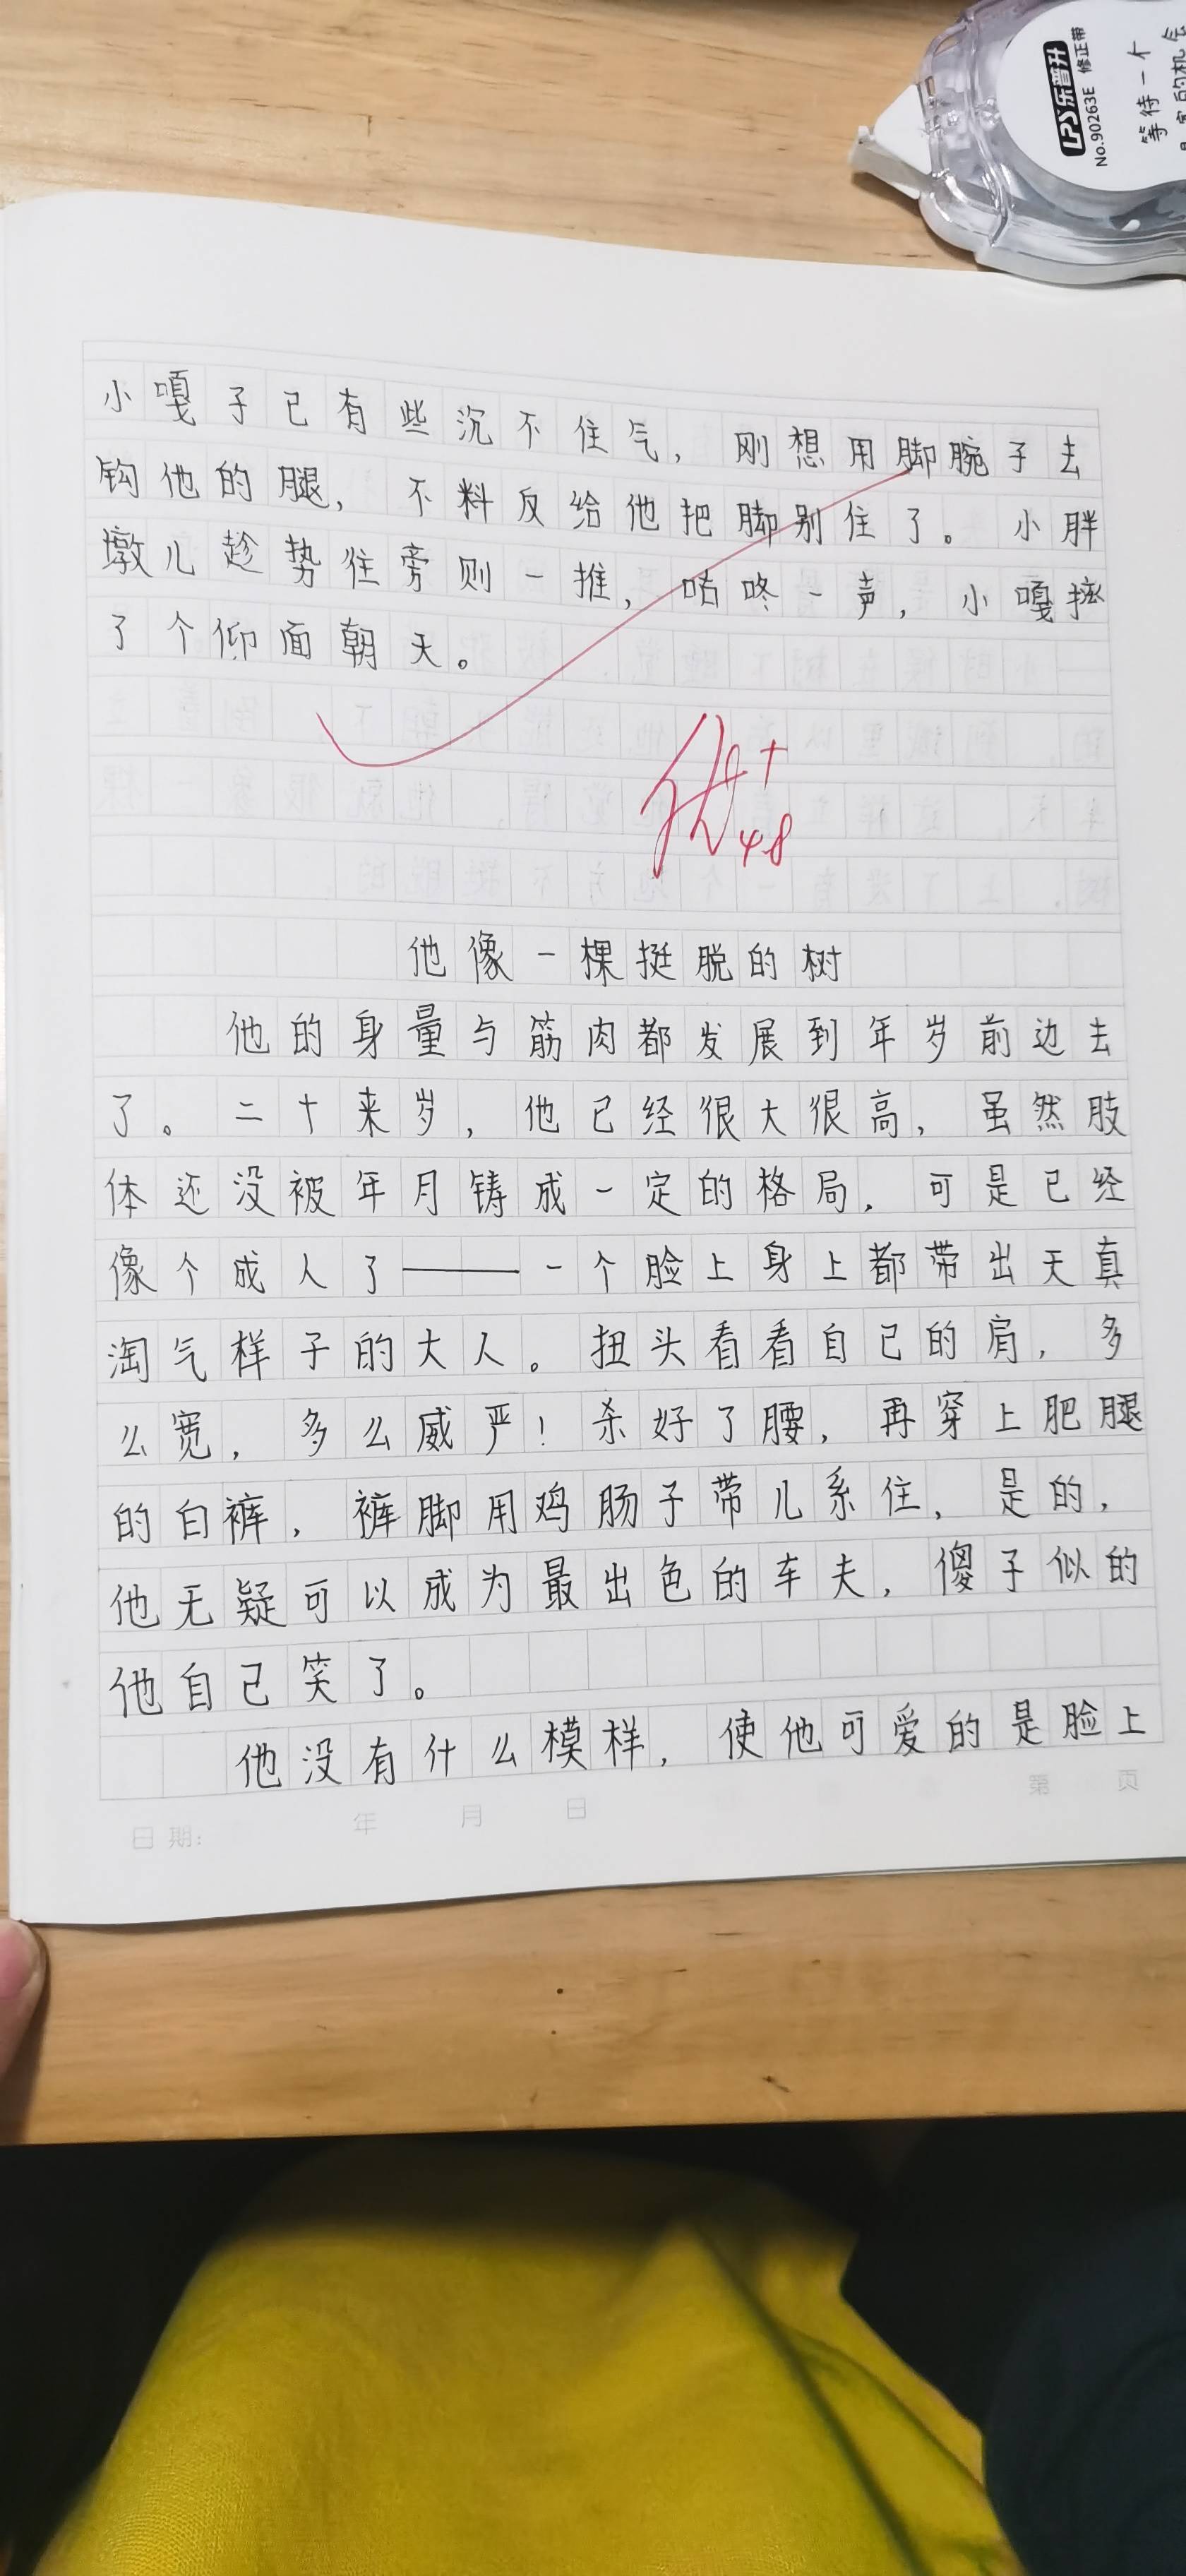 LPS乐普升
No.90263E 修正带
等待一个
小嘎子已有些沉不住气，刚想用脚腕子去
钩他的腿，不料反给他把脚别住了。小胖
墩儿趁势往旁则一推，咕咚一声，小嘎摔
了个仰面朝天。
优+
48
他像一棵挺脱的树
他的身量与筋肉都发展到年岁前边去
了。二十来岁，他已经很大很高，虽然肢
体还没被年月铸成一定的格局，可是已经
像个成人了——一个脸上身上都带出天真
淘气样子的大人。扭头看看自己的肩，多
么宽，多么威严！杀好了腰，再穿上肥腿
的白裤，裤脚用鸡肠子带儿系住，是的，
他无疑可以成为最出色的车夫，傻子似的
他自己笑了。
他没有什么模样，使他可爱的是脸上
日期： 年 月 日 第 页